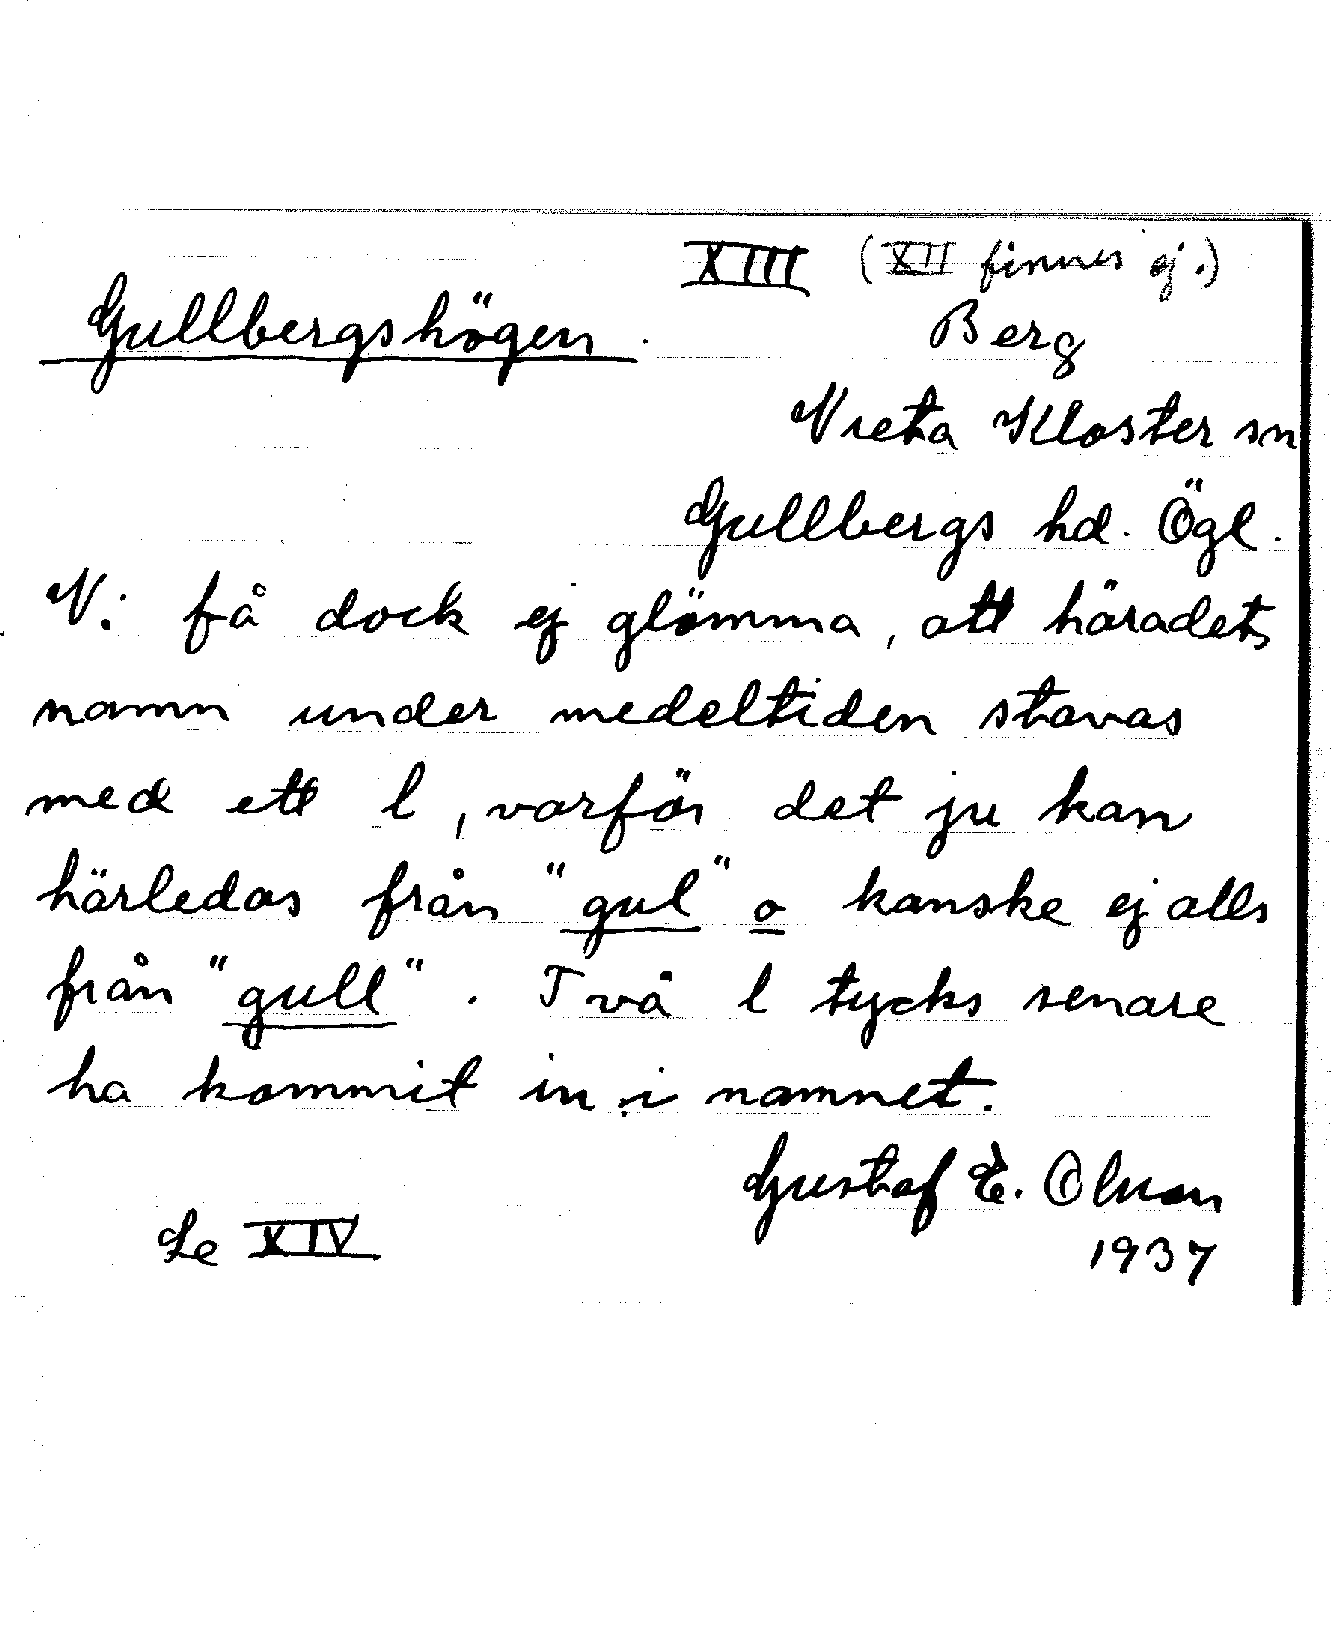 XIII (XII finnes ej.)
Gullbergshögen.
Berg
Vreta Kloster sn
Gullbergs hd. Ögl.
Vi få dock ej glömma, att häradets
namn under medeltiden stavas
med ett l, varför det ju kan
härledas från "gul" o kanske ej alls
från "gull". Två l tycks senare
ha kommit in i namnet.
Gustaf E. Olsson
1937
Se XIV